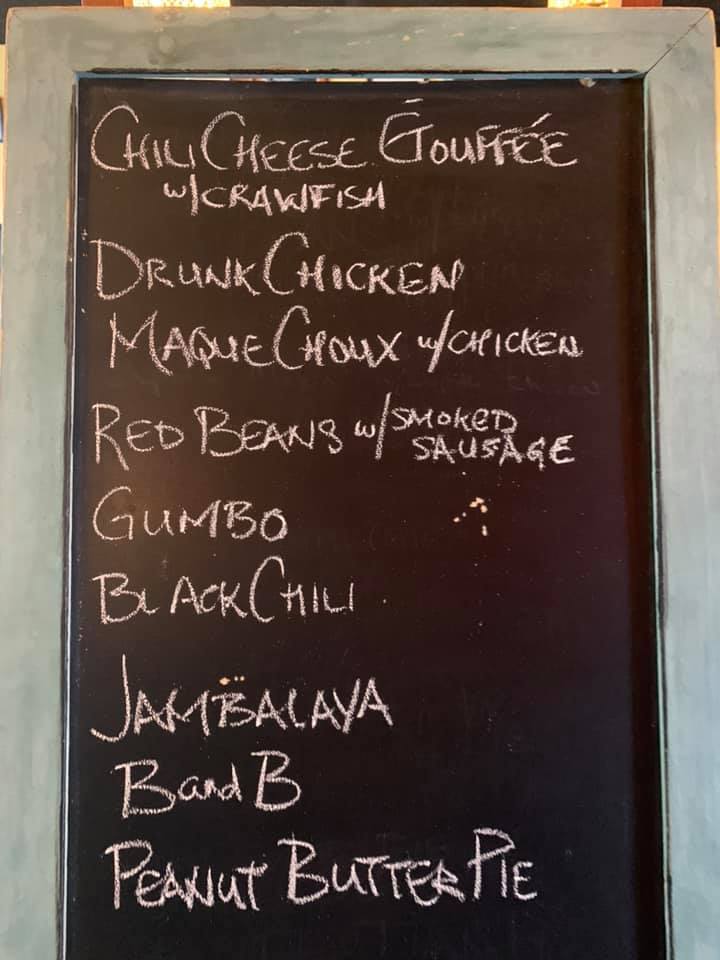 CHILI CHEESE ÉTOUFFÉE
w/CRAWFISH
DRUNK CHICKEN
MAQUE CHOUX w/CHICKEN
RED BEANS w/SMOKED
SAUSAGE
GUMBO
BLACK CHILI
JAMBALAYA
B and B
PEANUT BUTTER PIE